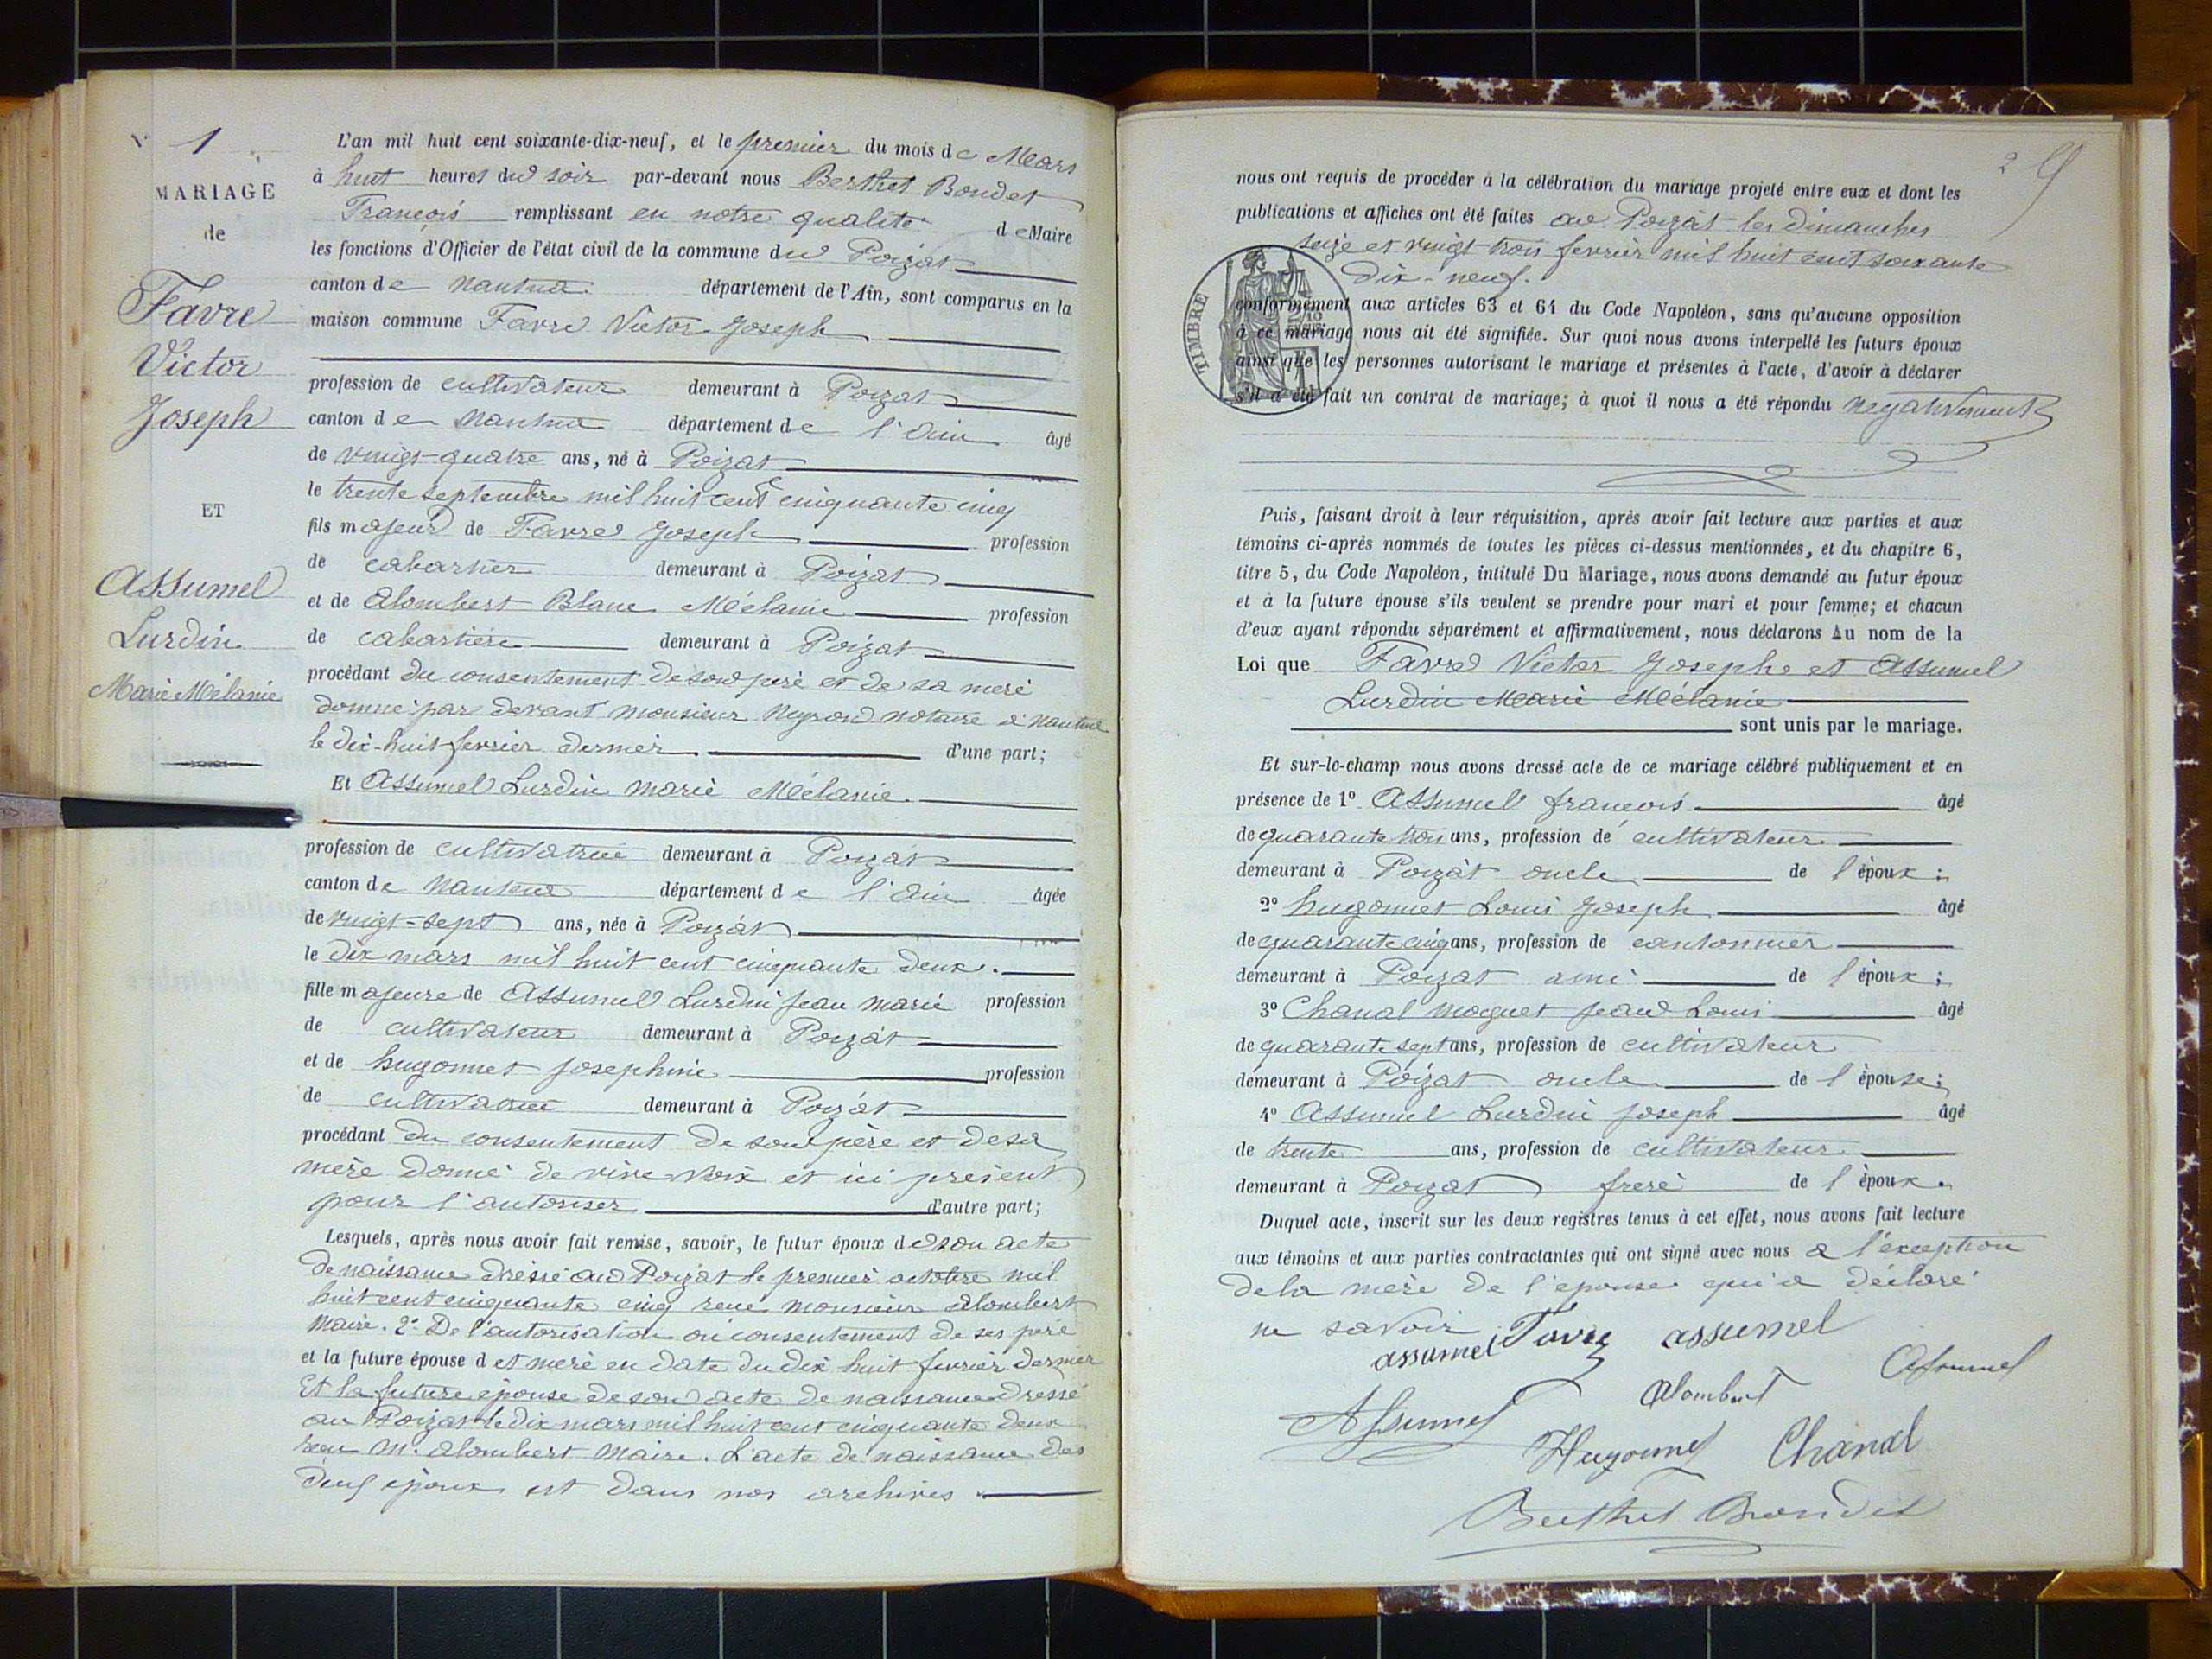 N° 1
MARIAGE
de
Favre
Victor
Joseph
ET
Assumel
Lurdin
Marie Mélanie
L'an mil huit cent soixante-dix-neuf, et le premier du mois de Mars
à huit heures du soir par-devant nous Berthet Bondet
François remplissant en notre qualité de Maire
les fonctions d'Officier de l'état civil de la commune du Poizat
canton de Nantua département de l'Ain, sont comparus en la
maison commune Favre Victor Joseph
profession de cultivateur demeurant à Poizat
canton de Nantua département de l'Ain âgé
de vingt-quatre ans, né à Poizat
le trente septembre mil huit cent cinquante cinq
fils majeur de Favre Joseph profession
de cabartier demeurant à Poizat
et de Alombert Blanc Mélanie profession
de cabartière demeurant à Poizat
procédant du consentement de son père et de sa mère
donné par devant monsieur Neyron notaire à Nantua
le dix-huit fevrier dernier d'une part;
Et Assumel Lurdin Marie Mélanie.
profession de cultivatrice demeurant à Poizat
canton de Nantua département de l'Ain âgée
de vingt-sept ans, née à Poizat
le dix mars mil huit cent cinquante deux.
fille majeure de Assumel Lurdin jean marie profession
de cultivateur demeurant à Poizat
et de hugonnet josephine profession
de cultivatrice demeurant à Poizat
procédant du consentement de son père et de sa
mère donné de vive voix et ici présent
pour l'autoriser d'autre part;
Lesquels, après nous avoir fait remise, savoir, le futur époux de son acte
de naissance dressé au Poizat le premier octobre mil
huit cent cinquante cinq reçu monsieur Alombert
Maire. 2° De l'autorisation ou consentement de ses père
et la future épouse d et mère en date du dix huit fevrier dernier
Et la future épouse de son acte de naissance dressé
au Poizat le dix mars mil huit cent cinquante deux
reçu M. Alombert Maire. L'acte de naissance des
deux époux est dans nos archives.
2
nous ont requis de procéder à la célébration du mariage projeté entre eux et dont les
publications et affiches ont été faites au Poizat les dimanches
seize et vingt trois fevrier mil huit cent soixante
dix-neuf.
TIMBRE
conformément aux articles 63 et 64 du Code Napoléon, sans qu'aucune opposition
à ce mariage nous ait été signifiée. Sur quoi nous avons interpellé les futurs époux
ainsi que les personnes autorisant le mariage et présentes à l'acte, d'avoir à déclarer
s'il a été fait un contrat de mariage; à quoi il nous a été répondu négativement
Puis, faisant droit à leur réquisition, après avoir fait lecture aux parties et aux
témoins ci-après nommés de toutes les pièces ci-dessus mentionnées, et du chapitre 6,
titre 5, du Code Napoléon, intitulé Du Mariage, nous avons demandé au futur époux
et à la future épouse s'ils veulent se prendre pour mari et pour femme; et chacun
d'eux ayant répondu séparément et affirmativement, nous déclarons Au nom de la
Loi que Favre Victor Joseph et Assumel
Lurdin Marie Mélanie
sont unis par le mariage.
Et sur-le-champ nous avons dressé acte de ce mariage célébré publiquement et en
présence de 1° Assumel françois âgé
de quarante trois ans, profession de cultivateur
demeurant à Poizat oncle de l'époux;
2° hugonnet Louis Joseph âgé
de quarante cinq ans, profession de cantonnier
demeurant à Poizat ami de l'époux;
3° Chanal Moguet jean Louis âgé
de quarante sept ans, profession de cultivateur
demeurant à Poizat oncle de l'épouse;
4° Assumel Lurdin joseph âgé
de trente ans, profession de cultivateur
demeurant à Poizat frère de l'époux.
Duquel acte, inscrit sur les deux registres tenus à cet effet, nous avons fait lecture
aux témoins et aux parties contractantes qui ont signé avec nous à l'exception
de la mère de l'épouse qui a déclaré
ne savoir
assumel Favre assumel
Assumel Alombert Assumel
Hugonnet Chanal
Berthet Bondet